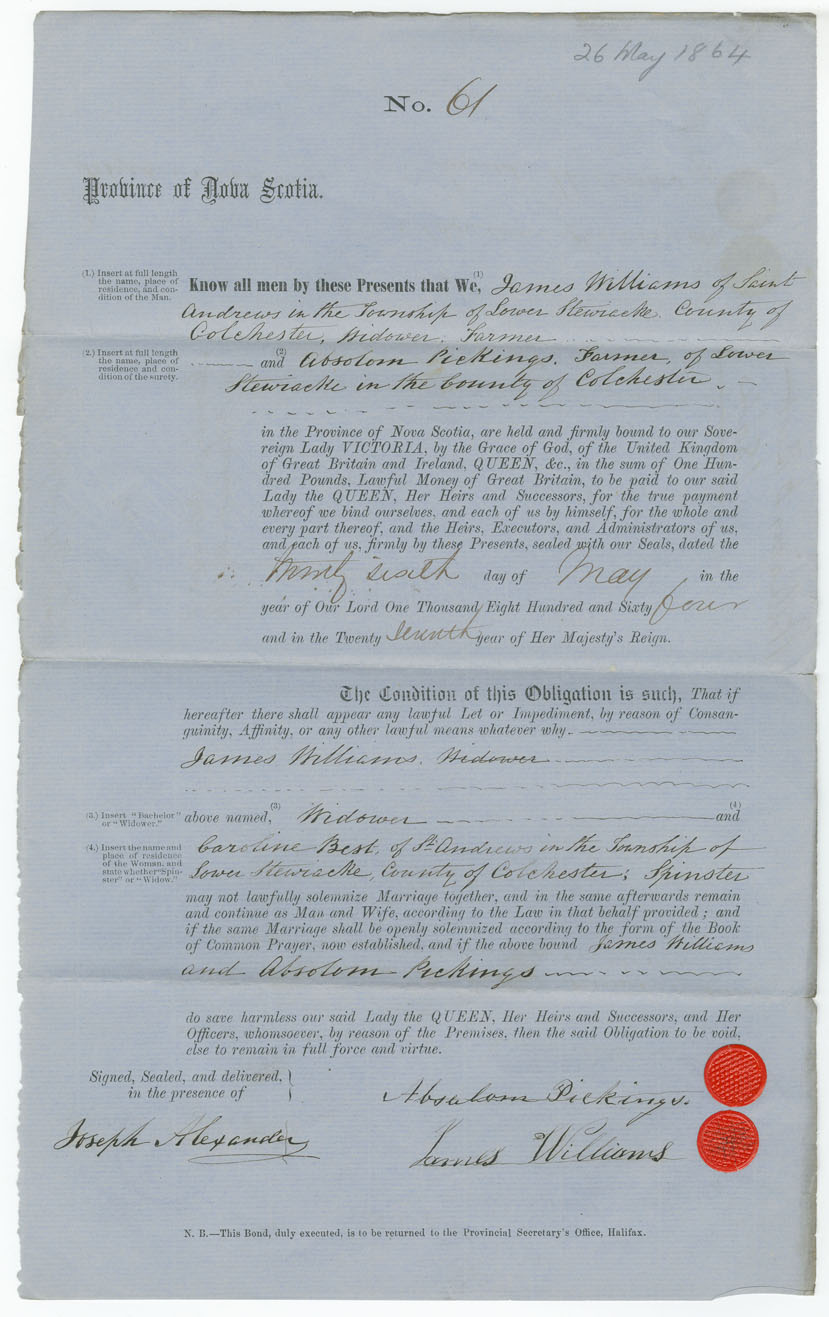 26 May 1864
No. 61
Province of Nova Scotia.
(1.) Insert at full length
the name, place of
residence, and con-
dition of the Man.
Know all men by these Presents that We, (1) James Williams of Saint
Andrews in the Township of Lower Stewiacke. County of
Colchester, Widower. Farmer
(2.) Insert at full length
the name, place of
residence and con-
dition of the surety.
and (2) Absolom Pickings. Farmer, of Lower
Stewiacke in the County of Colchester.
in the Province of Nova Scotia, are held and firmly bound to our Sove-
reign Lady VICTORIA, by the Grace of God, of the United Kingdom
of Great Britain and Ireland, QUEEN, &c., in the sum of One Hun-
dred Pounds, Lawful Money of Great Britain, to be paid to our said
Lady the QUEEN, Her Heirs and Successors, for the true payment
whereof we bind ourselves, and each of us by himself, for the whole and
every part thereof, and the Heirs, Executors, and Administrators of us,
and each of us, firmly by these Presents, sealed with our Seals, dated the
twenty sixth day of May in the
year of Our Lord One Thousand Eight Hundred and Sixty four
and in the Twenty Seventh year of Her Majesty's Reign.
The Condition of this Obligation is such, That if
hereafter there shall appear any lawful Let or Impediment, by reason of Consan-
guinity, Affinity, or any other lawful means whatever why.
James Williams. Widower
(3.) Insert "Bachelor"
or "Widower."
above named, (3) Widower and (4)
(4.) Insert the name and
place of residence
of the Woman, and
state whether "Spin-
ster" or "Widow."
Caroline Best. of St. Andrews in the Township of
Lower Stewiacke, County of Colchester; Spinster
may not lawfully solemnize Marriage together, and in the same afterwards remain
and continue as Man and Wife, according to the Law in that behalf provided; and
if the same Marriage shall be openly solemnized according to the form of the Book
of Common Prayer, now established, and if the above bound James Williams
and Absolom Pickings
do save harmless our said Lady the QUEEN, Her Heirs and Successors, and Her
Officers, whomsoever, by reason of the Premises, then the said Obligation to be void,
else to remain in full force and virtue.
Signed, Sealed, and delivered,
in the presence of
Absalom Pickings.
Joseph Alexander
James Williams
N. B.—This Bond, duly executed, is to be returned to the Provincial Secretary's Office, Halifax.